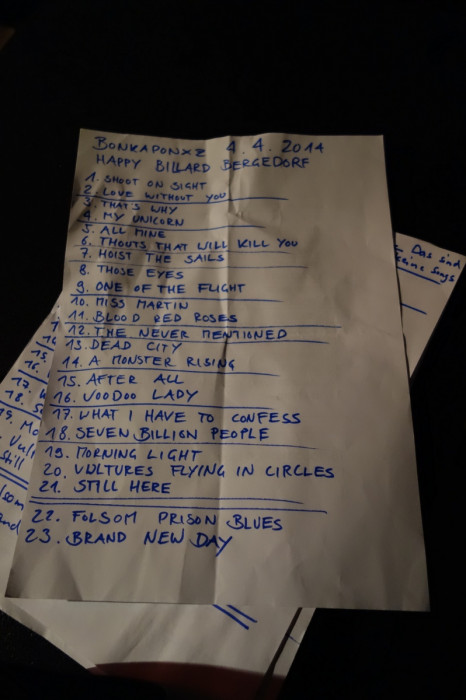 BONKAPONXZ 4.4.2014
HAPPY BILLARD BERGEDORF
1. SHOOT ON SIGHT
2. LOVE WITHOUT YOU
3. THAT'S WHY
4. MY UNICORN
5. ALL MINE
6. THOUTS THAT WILL KILL YOU
7. HOIST THE SAILS
8. THOSE EYES
9. ONE OF THE FLIGHT
10. MISS MARTIN
11. BLOOD RED ROSES
12. THE NEVER MENTIONED
13. DEAD CITY
14. A MONSTER RISING
15. AFTER ALL
16. VOODOO LADY
17. WHAT I HAVE TO CONFESS
18. SEVEN BILLION PEOPLE
19. MORNING LIGHT
20. VULTURES FLYING IN CIRCLES
21. STILL HERE
22. FOLSOM PRISON BLUES
23. BRAND NEW DAY
Das sind
keine Songs
15.
16.
17.
18.
19. Mo
Still